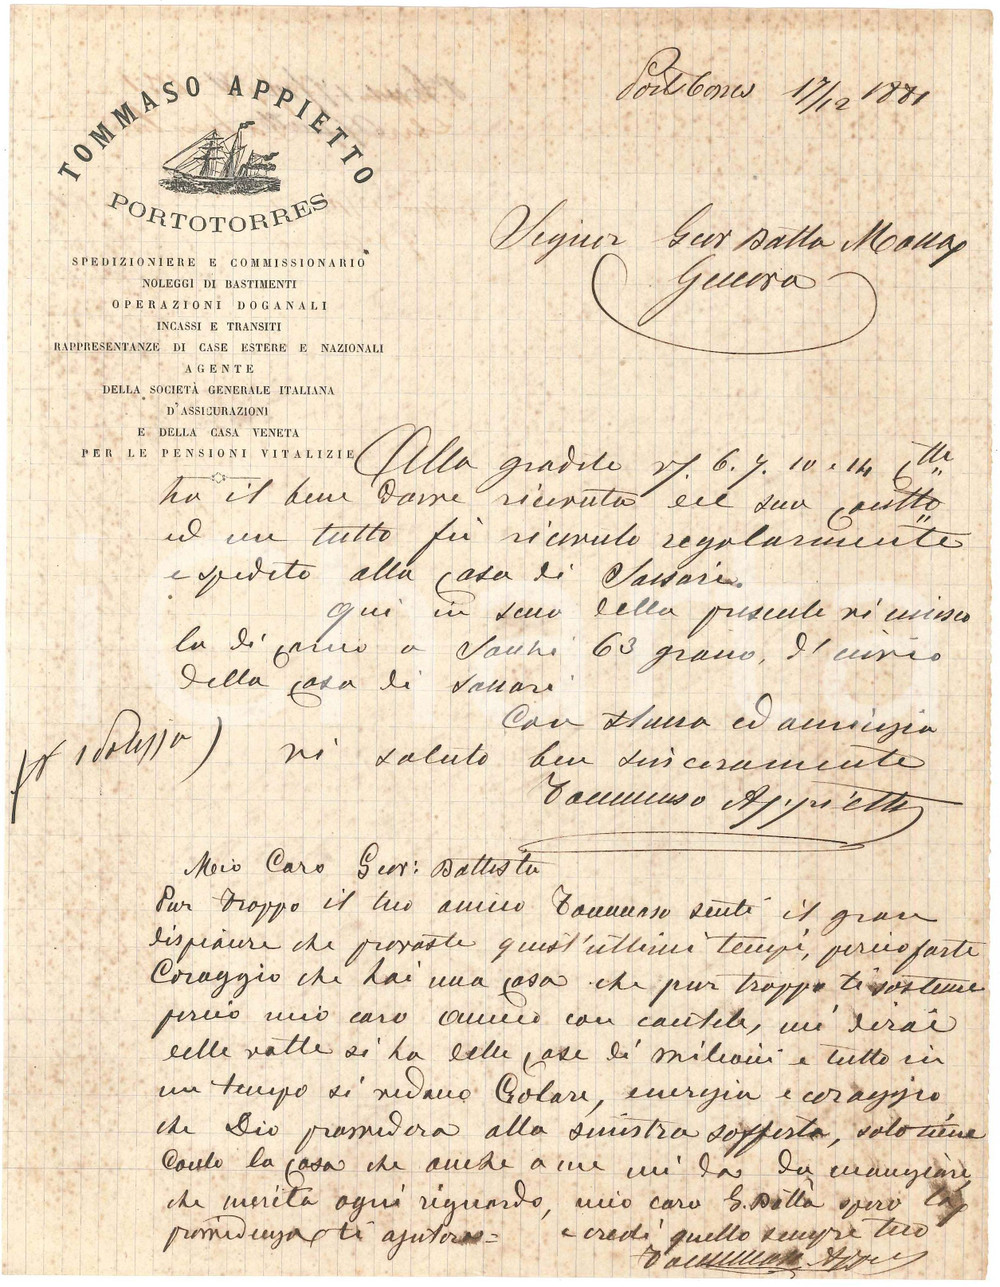 TOMMASO APPIETTO
PORTOTORRES
SPEDIZIONIERE E COMMISSIONARIO
NOLEGGI DI BASTIMENTI
OPERAZIONI DOGANALI
INCASSI E TRANSITI
RAPPRESENTANZE DI CASE ESTERE E NAZIONALI
AGENTE
DELLA SOCIETÀ GENERALE ITALIANA
D'ASSICURAZIONI
E DELLA CASA VENETA
PER LE PENSIONI VITALIZIE
Portotorres 17/12 1881
Signor Giov Batta
Genova
Alla gradite 6. 7. 10 e 14
ho il bene darne ricevuta del suo
ed un tutto fù ricevuto regolarmente
e spedito alla casa di Sassari.
qui in seno della presente vi
la di a 63 grano, d'invio
della casa di Sassari
Con stima ed amicizia
vi saluto ben sinceramente
Tommaso Appietto
Mio Caro Giov: Battista
Pur troppo il tuo amico Tommaso sente il gran
dispiacere che provaste quest'ultimi tempi, perciò forte
Coraggio che hai una casa che pur troppo ti sostiene
perciò mio caro amico con cautele, mi dirai
delle volte si ha delle case di milioni e tutto in
un tempo si vedano Crolare, energia e coraggio
che Dio provvederà alla sinistra sofferta, solo tiene
Conto la casa che anche a me mi da da mangiare
che merita ogni riguardo, mio caro G. Battà spero la
providenza ti ajuterà = e credi quello sempre tuo
Tommaso